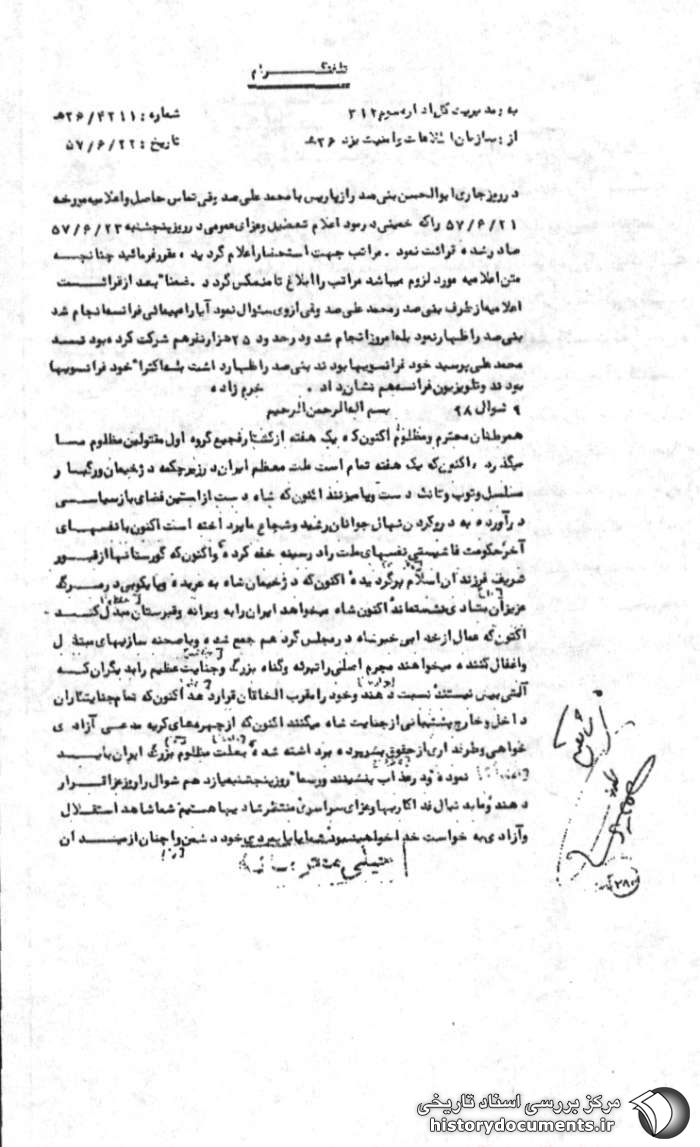 تلفنگـــــــرام
به : مدیریت کل اداره سوم ۳۱۲
شماره : ۴۲۱۱ / ۲۶ ﻫ
از : سازمان اطلاعات و امنیت یزد ۲۶ ﻫ
تاریخ : ۵۷/۶/۲۲
در روز جاری ابوالحسن بنی صدر از پاریس با محمد علی صدوقی تماس حاصل و اعلامیه مورخه
۵۷/۶/۲۱ را که خمینی در مورد اعلام تعطیل و عزای عمومی در روز پنجشنبه ۵۷/۶/۲۳
صادر شده قرائت نمود . مراتب جهت استحضار اعلام گردید ، مقرر فرمائید چنانچه
متن اعلامیه مورد لزوم میباشد مراتب را ابلاغ تا منعکس گردد . ضمنا" بعد از قرائت
اعلامیه از طرف بنی صدر محمد علی صدوقی از وی سئوال نمود آیا راهپیمائی فرانسه انجام شد
بنی صدر اظهار نمود بله امروز انجام شد و در حدود ۲۵ هزار نفر هم شرکت کرده بودند
محمد علی پرسید خود فرانسویها بودند بنی صدر اظهار داشت بله اکثرا" خود فرانسویها
بودند و تلویزیون فرانسه هم نشان داد . خرم زاده
۹ شوال ۹۸ بسم اله الرحمن الرحیم
هموطنان محترم و مظلوم اکنون که یک هفته از کشتار فجیع گروه اول مقتولین مظلوم ما
میگذرد ، اکنون که یک هفته تمام است ملت معظم ایران در زیر چکمه دژخیمان و رگبار
مسلسل و توپ و تانک دست و پا میزنند اکنون که شاه دست از آستین فضای باز سیاسی
درآورده به درو کردن نهال جوانان رشید و شجاع ما پرداخته است اکنون با نفسهای
آخر حکومت فاشیستی نفسهای ملت را در سینه خفه کرده و اکنون که گورستانها از قبور
شریف فرزندان اسلام پر گردیده اکنون که دژخیمان شاه به عربده و پایکوبی در مرگ
عزیزان بشادی نشسته‌اند اکنون شاه میخواهد ایران را به ویرانه و قبرستان مبدل کند
اکنون که عمال از خدا بی خبر شاه در مجلس گرد هم جمع شده و با صحنه سازیهای مبتذل
و اغفال کننده میخواهند مجرم اصلی را تبرئه و گناه بزرگ و جنایت عظیم را بدیگران که
آلتی بیش نیستند نسبت دهند و خود را مقرب الخاقان قرار دهد اکنون که تمام جنایتکاران
داخل و خارج پشتیبانی از جنایت شاه میکنند اکنون که از چهره‌های کریه مدعی آزادی
خواهی و طرفداری از حقوق بشر پرده برداشته شده ملت مظلوم بزرگ ایران باید
نموده و در عذاب بنشینند و رسما" روز پنجشنبه یازدهم شوال را روز عزا قرار
دهند و ما بدنبال فداکاریها و عزای سراسری منتظر شادیها هستیم شما شاهد استقلال
و آزادی به خواست خدا خواهید بود شما با پایمردی خود دشمن را چنان از میدان
۲۸۰
مرکز بررسی اسناد تاریخی
historydocuments.ir